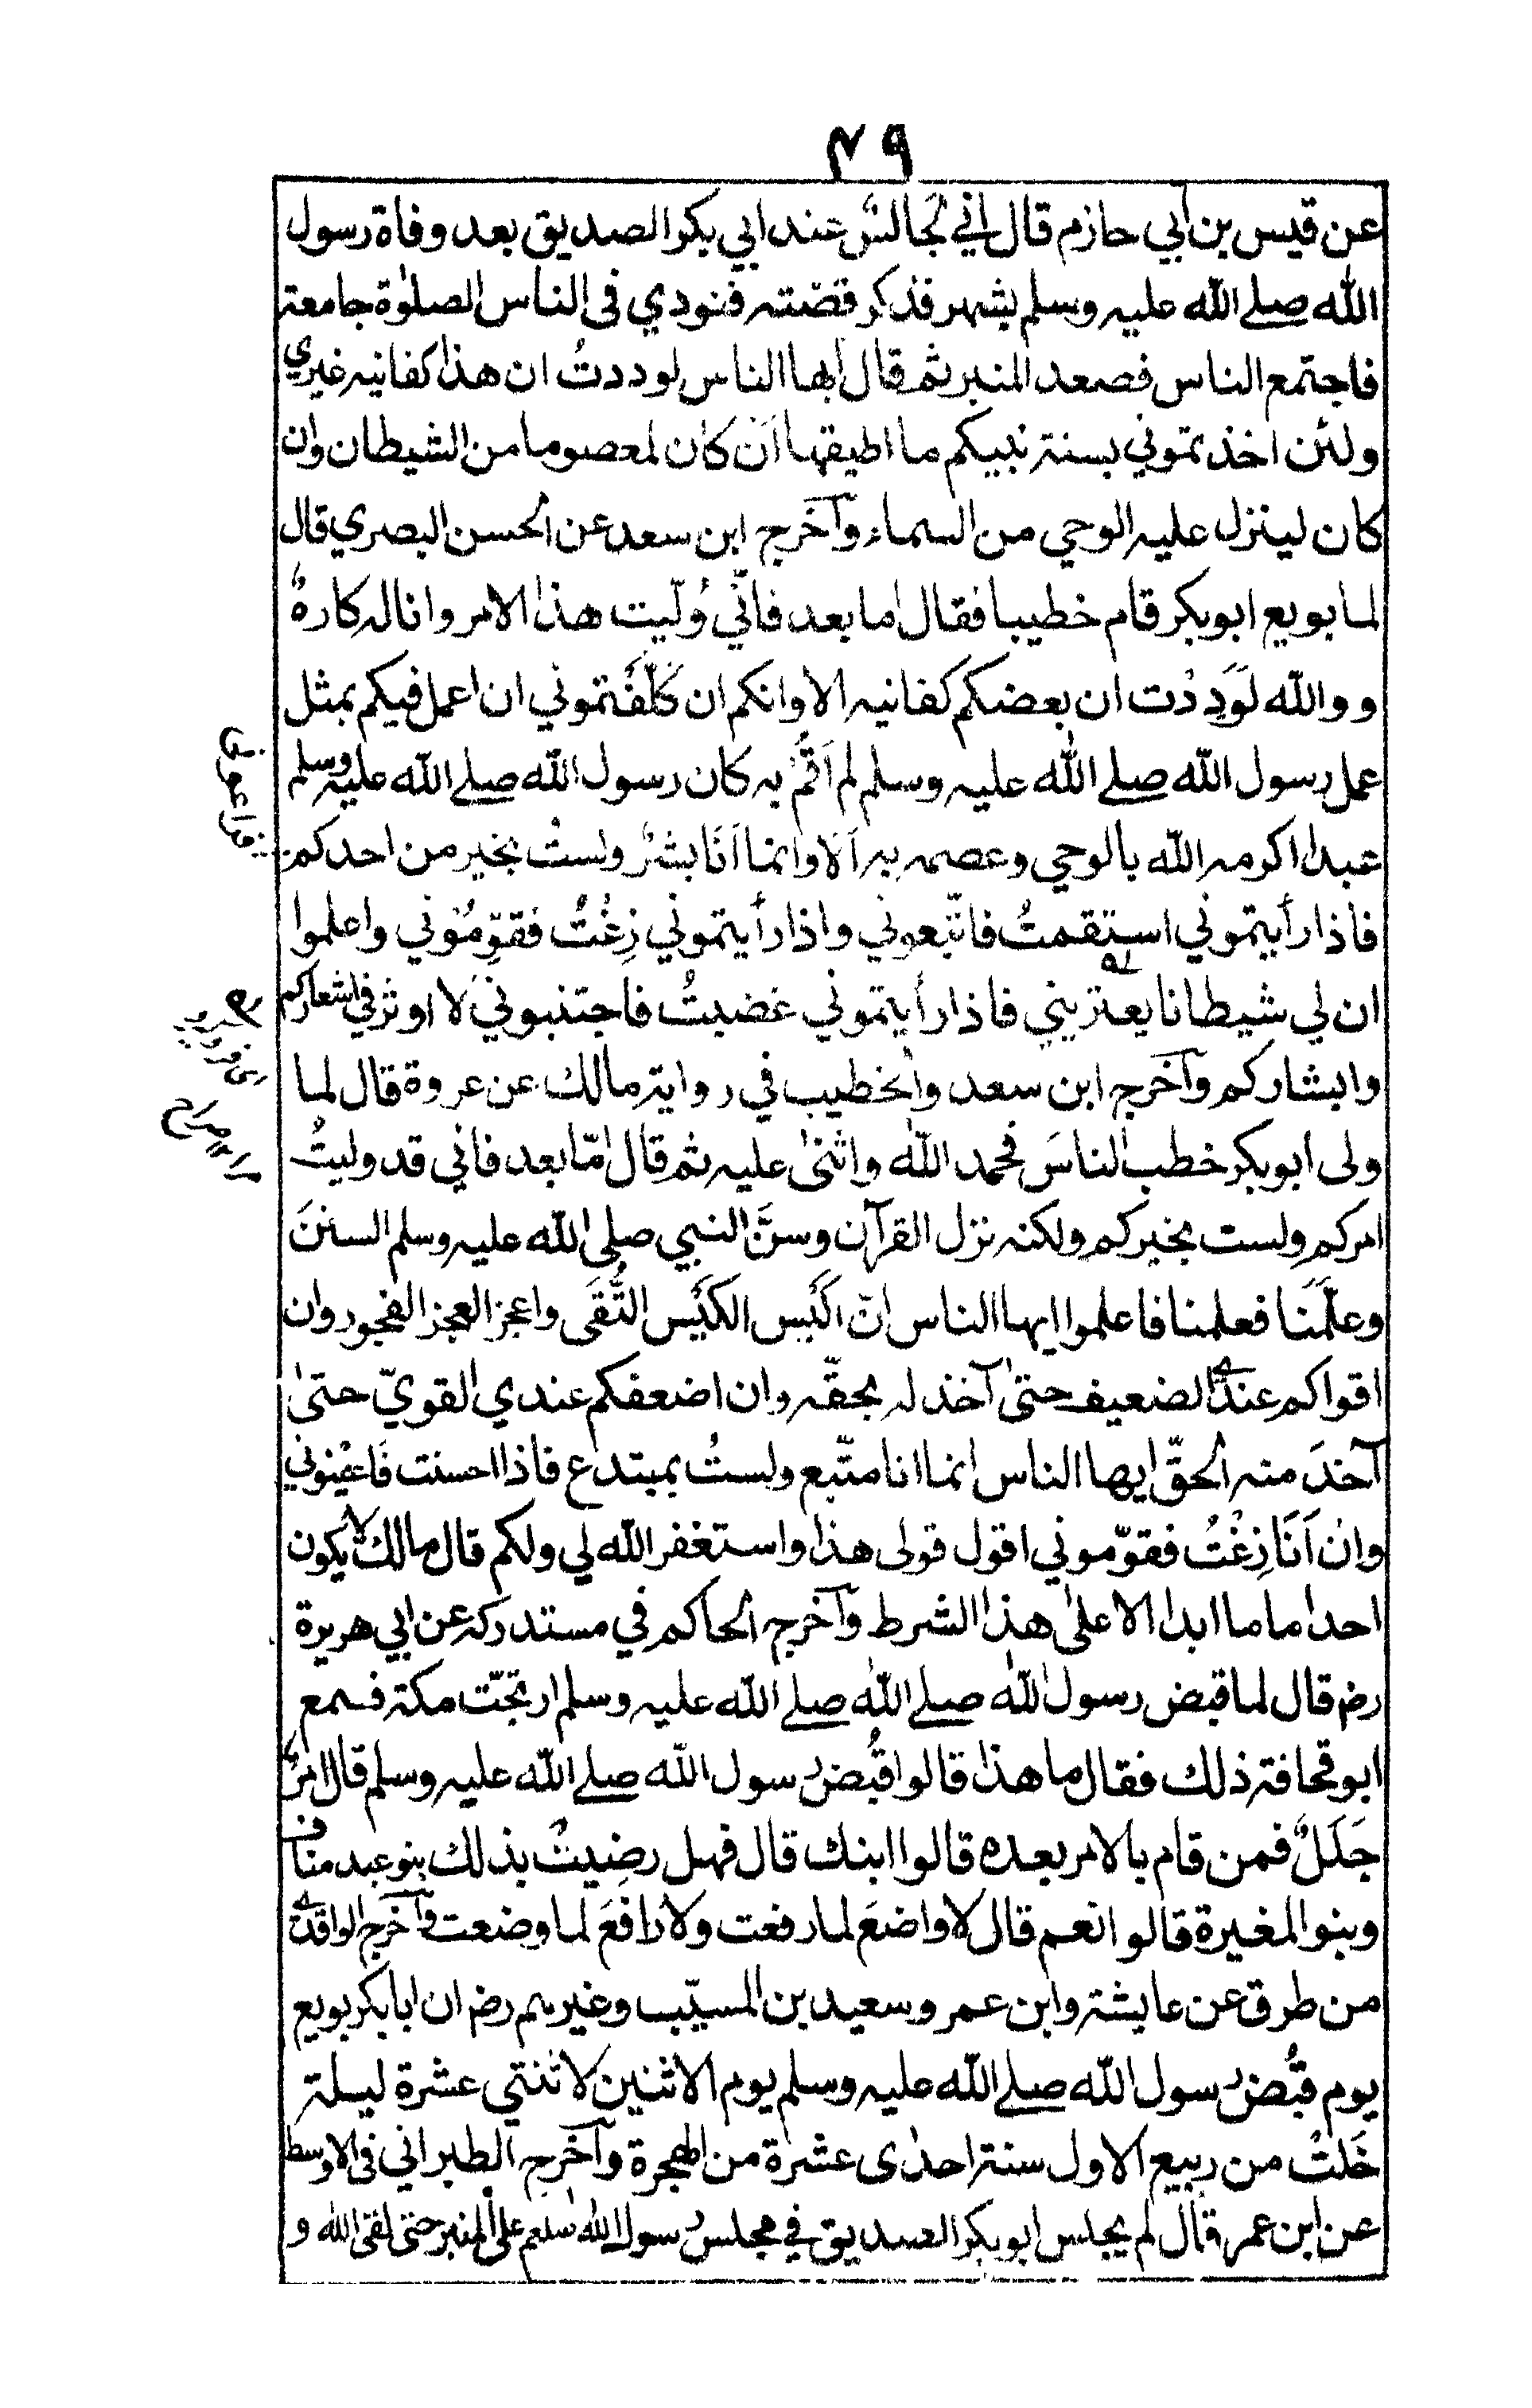 ٤٩
عن قيس بن أبي حازم قال اني لجالسٌ عند ابي بكر الصديق بعد وفاة رسول
الله صلے الله عليه وسلم بشهر فذكر قصّته فنودي فى الناس الصلوٰة جامعة
فاجتمع الناس فصعد المنبر ثم قال ايها الناس لوددتُ ان هذا كفانيه غيري
ولئن اخذتموني بسنة نبيكم ما اطيقها اَنْ كان لمعصوما من الشيطان وان
كان لينزل عليه الوحي من السماء وآخرج ابن سعد عن الحسن البصري قال
لما بويع ابوبكر قام خطيبا فقال اما بعد فانّي وُلّيت هذا الامر وانا له كارهٌ
و والله لَوَدِدْت ان بعضكم كفانيه الا وانكم ان كَلّفْتموني ان اعمل فيكم بمثل
عمل رسول الله صلے الله عليه وسلم لم اَقُمْ به كان رسول الله صلے الله عليه وسلم
عبدا اكرمه الله بالوحي وعصمه به اَلا وانما اَنَا بشرٌ ولستُ بخير من احدكم
فاذا رأيتموني استقمتُ فاتّبعوني واذا رأيتموني زِغْتُ فقوِّمُوني واعلموا
ان لي شيطانا يعتريني فاذا رأيتموني غضبتُ فاجتنبوني لا اوثر في اشعاركم
وابشاركم وآخرج ابن سعد والخطيب في رواية مالك عن عروة قال لما
ولى ابوبكر خطب الناسَ فحمد الله واثنىٰ عليه ثم قال امّا بعد فاني قد وليتُ
امركم ولست بخيركم ولكنه نزل القرآن وسنَّ النبي صلى الله عليه وسلم السننَ
وعلَّمَنا فعلمنا فاعلموا ايها الناس انّ اكْيَس الكَيْس التُّقَى واعجز العجز الفجور وان
اقواكم عندے الضعيف حتىٰ آخذ له بحقّه وان اضعفكم عندي القويّ حتىٰ
آخذَ منه الحقّ ايها الناس انما انا متّبع ولستُ بمبتدع فاذا احسنت فَاعِيْنوني
وان اَنَا زِغْتُ فقوّموني اقول قولى هذا واستغفر الله لي ولكم قال مالك لا يكون
احد اماما ابدا الا علىٰ هذا الشرط وآخرج الحاكم في مستدركه عن ابي هريرة
رض قال لما قبض رسول الله صلے الله صلے الله عليه وسلم ارتجّت مكة فسمع
ابو قحافة ذلك فقال ما هذا قالوا قُبض رسول الله صلے الله عليه وسلم قال امرٌ
جَلَلٌ فمن قام بالامر بعده قالوا ابنك قال فهل رضِيتْ بذلك بنو عبد مناف
وبنو المغيرة قالوا نعم قال لا واضعَ لما رفعت ولا رافعَ لما وضعت وآخرج الواقدے
من طرق عن عايشة وابن عمر وسعيد بن المسيّب وغيرهم رض ان ابا بكر بويع
يوم قبُض رسول الله صلے الله عليه وسلم يوم الاثنين لاثنتي عشرة ليلة
خَلتْ من ربيع الاول سنة احدٰى عشرة من الهجرة وآخرج الطبراني فى الاوسط
عن ابن عمر قال لم يجلس ابوبكر الصديق في مجلس رسول الله صلعم على المنبر حتى لقى الله و